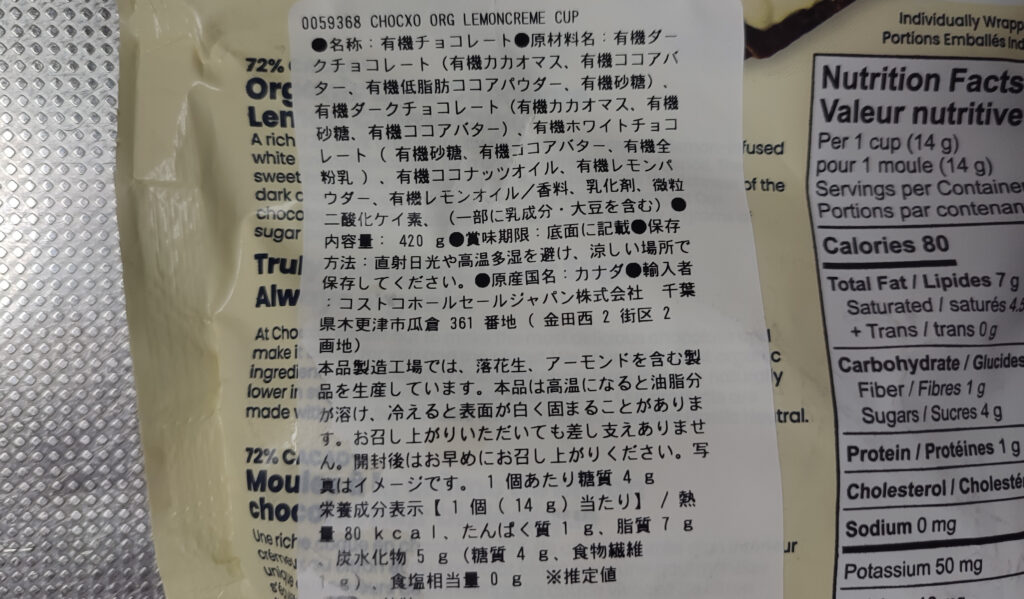 0059368 CHOCXO ORG LEMONCREME CUP
●名称：有機チョコレート●原材料名：有機ダー
クチョコレート（有機カカオマス、有機ココアバ
ター、有機低脂肪ココアパウダー、有機砂糖）、
有機ダークチョコレート（有機カカオマス、有機
砂糖、有機ココアバター）、有機ホワイトチョコ
レート（有機砂糖、有機ココアバター、有機全
粉乳）、有機ココナッツオイル、有機レモンパ
ウダー、有機レモンオイル／香料、乳化剤、微粒
二酸化ケイ素、（一部に乳成分・大豆を含む）●
内容量：420g●賞味期限：底面に記載●保存
方法：直射日光や高温多湿を避け、涼しい場所で
保存してください。●原産国名：カナダ●輸入者
：コストコホールセールジャパン株式会社 千葉
県木更津市瓜倉 361 番地（金田西 2 街区 2
画地）
本品製造工場では、落花生、アーモンドを含む製
品を生産しています。本品は高温になると油脂分
が溶け、冷えると表面が白く固まることがありま
す。お召し上がりいただいても差し支えありませ
ん。開封後はお早めにお召し上がりください。写
真はイメージです。1個あたり糖質4g
栄養成分表示【1個(14g)当たり】/熱
量80kcal、たんぱく質1g、脂質7g
、炭水化物5g（糖質4g、食物繊維
1g）、食塩相当量0g ※推定値
72%
Org
Lem
A rich
white
sweet
dark c
choco
sugar
fused
of the
Trul
Alw
At Cho
make it
ingredie
lower in
made w
tral.
72% C
Moul
choc
Une rich
crémeu
unique
Individually Wrapp
Portions Emballés Ind
Nutrition Facts
Valeur nutritive
Per 1 cup (14 g)
pour 1 moule (14 g)
Servings per Container
Portions par contenan
Calories 80
Total Fat / Lipides 7 g
Saturated / saturés 4.5
+ Trans / trans 0 g
Carbohydrate / Glucides
Fiber / Fibres 1 g
Sugars / Sucres 4 g
Protein / Protéines 1 g
Cholesterol / Cholesté
Sodium 0 mg
Potassium 50 mg